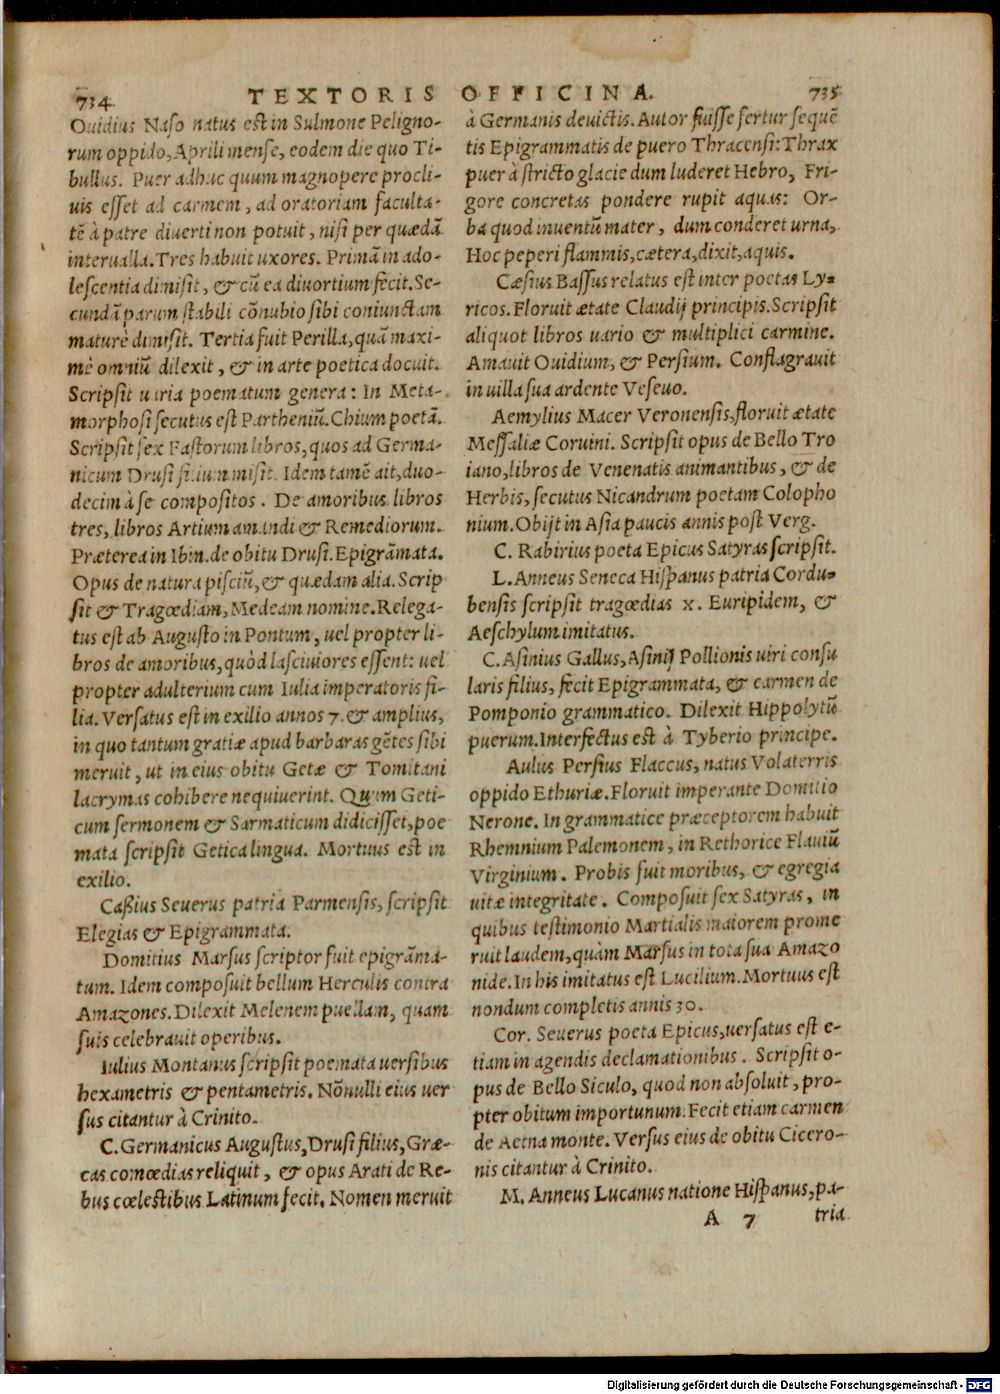 734 TEXTORIS OFFICINA. 735
Ouidius Naso natus est in Sulmone Peligno-
rum oppido, Aprili mense, eodem die quo Ti-
bullus. Puer adhuc quum magnopere procli-
uis esset ad carmen, ad oratoriam faculta-
tē à patre diuerti non potuit, nisi per quædā
interualla. Tres habuit uxores. Primā in ado-
lescentia dimisit, & cū ea diuortium fecit. Se-
cundā parum stabili cōnubio sibi coniunctam
maturè dimisit. Tertia fuit Perilla, quā maxi-
mè omniū dilexit, & in arte poetica docuit.
Scripsit uaria poematum genera: In Meta-
morphosi secutus est Partheniū. Chium poetā.
Scripsit sex Fastorum libros, quos ad Germa-
nicum Drusi filium misit. Idem tamē ait, duo-
decim à se compositos. De amoribus libros
tres, libros Artium amandi & Remediorum.
Præterea in Ibin. de obitu Drusi. Epigrāmata.
Opus de natura pisciū, & quædam alia. Scrip
sit & Tragœdiam, Medeam nomine. Relega-
tus est ab Augusto in Pontum, uel propter li-
bros de amoribus, quòd lasciuiores essent: uel
propter adulterium cum Iulia imperatoris fi-
lia. Versatus est in exilio annos 7. & amplius,
in quo tantum gratiæ apud barbaras gētes sibi
meruit, ut in eius obitu Getæ & Tomitani
lacrymas cohibere nequiuerint. Quum Geti-
cum sermonem & Sarmaticum didicisset, poe
mata scripsit Getica lingua. Mortuus est in
exilio.
Caßius Seuerus patria Parmensis, scripsit
Elegias & Epigrammata.
Domitius Marsus scriptor fuit epigrāma-
tum. Idem composuit bellum Herculis contra
Amazones. Dilexit Melenem puellam, quam
suis celebrauit operibus.
Iulius Montanus scripsit poemata uersibus
hexametris & pentametris. Nōnulli eius uer
sus citantur à Crinito.
C. Germanicus Augustus, Drusi filius, Græ-
cas comœdias reliquit, & opus Arati de Re-
bus cœlestibus Latinum fecit. Nomen meruit
à Germanis deuictis. Autor fuisse fertur sequē
tis Epigrammatis de puero Thracensi: Thrax
puer à stricto glacie dum luderet Hebro, Fri-
gore concretas pondere rupit aquas: Or-
ba quod inuentū mater, dum conderet urna,
Hoc peperi flammis, cætera, dixit, aquis.
Cæsius Bassus relatus est inter poetas Ly-
ricos. Floruit ætate Claudij principis. Scripsit
aliquot libros uario & multiplici carmine.
Amauit Ouidium, & Persium. Conflagrauit
in uilla sua ardente Veseuo.
Aemylius Macer Veronensis, floruit ætate
Messaliæ Coruini. Scripsit opus de Bello Tro
iano, libros de Venenatis animantibus, & de
Herbis, secutus Nicandrum poetam Colopho
nium. Obijt in Asia paucis annis post Verg.
C. Rabirius poeta Epicus Satyras scripsit.
L. Anneus Seneca Hispanus patria Cordu-
bensis scripsit tragœdias x. Euripidem, &
Aeschylum imitatus.
C. Asinius Gallus, Asinij Pollionis uiri consu
laris filius, fecit Epigrammata, & carmen de
Pomponio grammatico. Dilexit Hippolytū
puerum. Interfectus est à Tyberio principe.
Aulus Persius Flaccus, natus Volaterris
oppido Ethuriæ. Floruit imperante Domitio
Nerone. In grammatice præceptorem habuit
Rhemnium Palemonem, in Rethorice Flauiū
Virginium. Probis fuit moribus, & egregia
uitæ integritate. Composuit sex Satyras, in
quibus testimonio Martialis maiorem prome
ruit laudem, quàm Marsus in tota sua Amazo
nide. In his imitatus est Lucilium. Mortuus est
nondum completis annis 30.
Cor. Seuerus poeta Epicus, uersatus est e-
tiam in agendis declamationibus. Scripsit o-
pus de Bello Siculo, quod non absoluit, pro-
pter obitum importunum. Fecit etiam carmen
de Aetna monte. Versus eius de obitu Cicero-
nis citantur à Crinito.
M. Anneus Lucanus natione Hispanus, pa-
A 7 tria
Digitalisierung gefördert durch die Deutsche Forschungsgemeinschaft - DFG